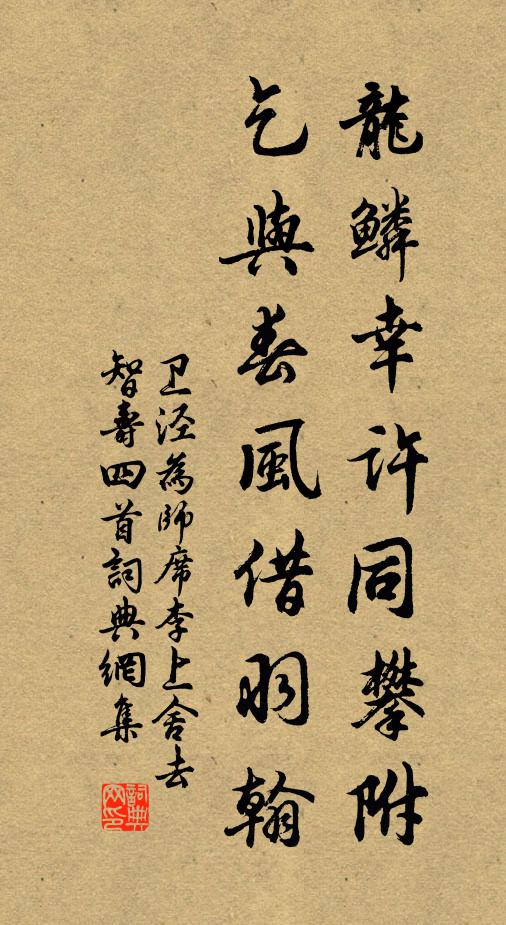 龍鱗幸許同攀附
乞與春風借羽翰
卫泾為師席李上舍去
智壽四首詞典網集
詞典網印